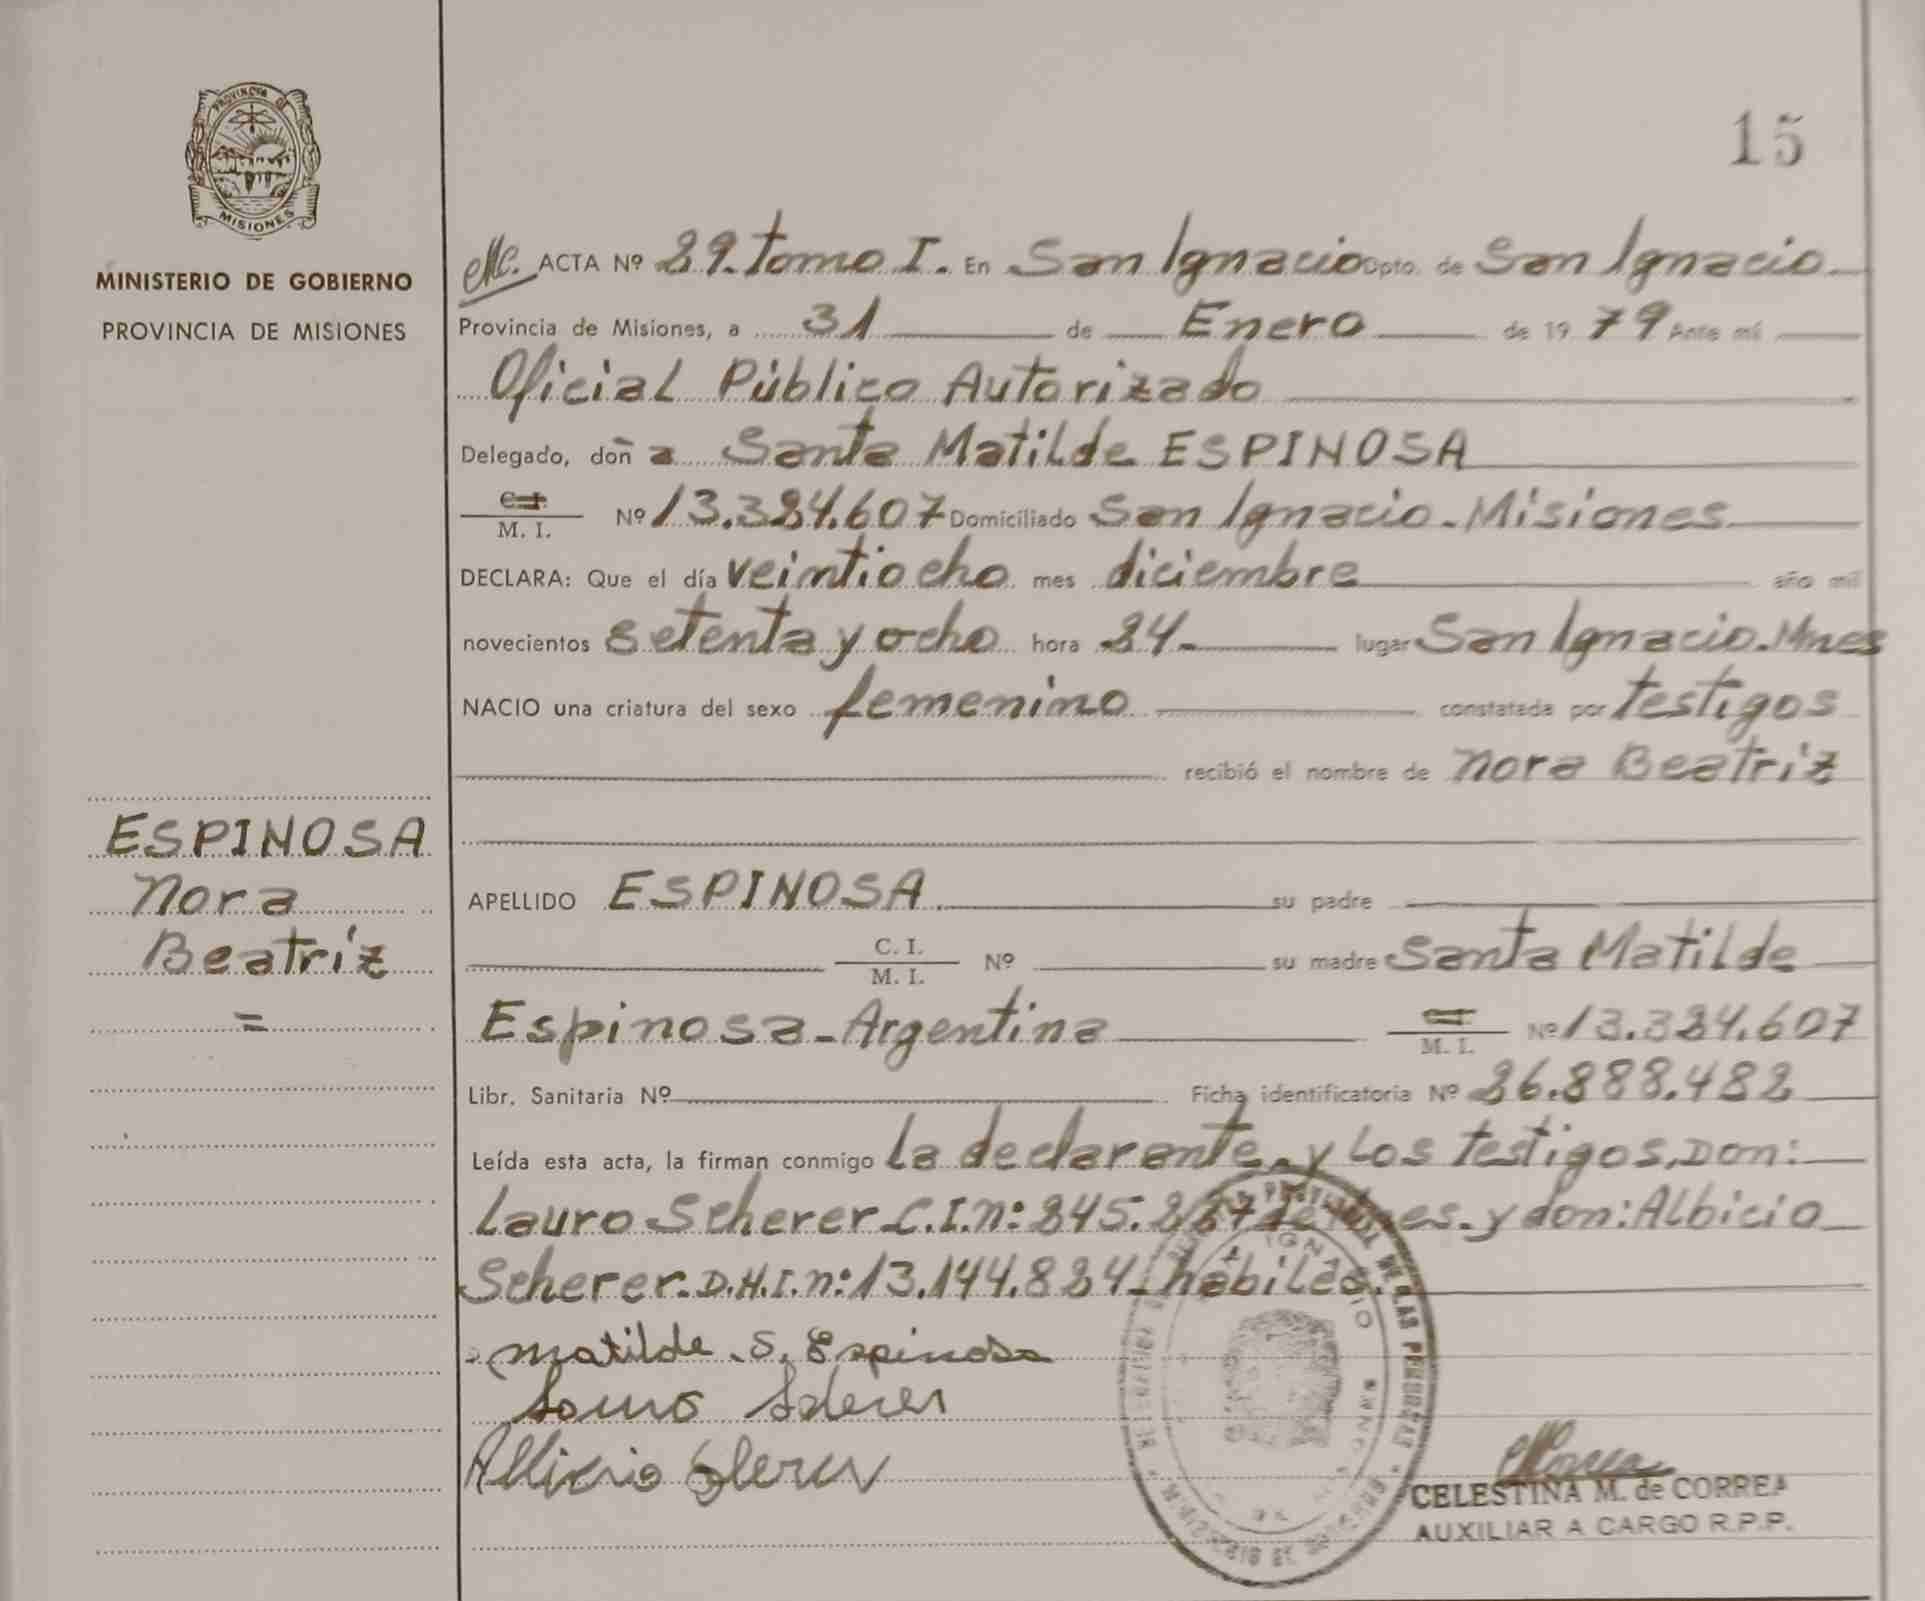 15
PROVINCIA DE
MISIONES
MINISTERIO DE GOBIERNO
PROVINCIA DE MISIONES
ESPINOSA
Nora
Beatriz
=
ACTA Nº 29. Tomo I. En San Ignacio Dpto. de San Ignacio
Provincia de Misiones, a 31 de Enero de 1979 Ante mi
Oficial Público Autorizado
Delegado, doña Santa Matilde ESPINOSA
C. I.
M. I. Nº 13.384.607 Domiciliado San Ignacio - Misiones
DECLARA: Que el día veintiocho mes diciembre año mil
novecientos setenta y ocho hora 24- lugar San Ignacio - Mnes
NACIO una criatura del sexo femenino constatada por testigos
recibió el nombre de Nora Beatriz
APELLIDO ESPINOSA su padre
C. I.
M. I. Nº su madre Santa Matilde
Espinosa - Argentina C. I.
M. I. Nº 13.384.607
Libr. Sanitaria Nº Ficha identificatoria Nº 26.888.482
Leída esta acta, la firman conmigo la declarante. y los testigos, Don:
Lauro Scherer - C.I.n: 245. y don: Albicio
Scherer. D.N.I. n: 13.144.884 - hábiles.
Matilde . S. Espinosa
CELESTINA M. de CORREA
AUXILIAR A CARGO R.P.P.